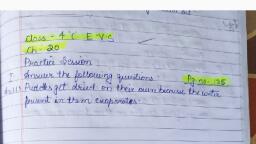 Class - 4 'C' E.V.S
Ch - 20
Practice Session
I Answer the following questions. Pg no - 135
Ans 1 Puddles get dried on their own because the water
present in them evaporates.